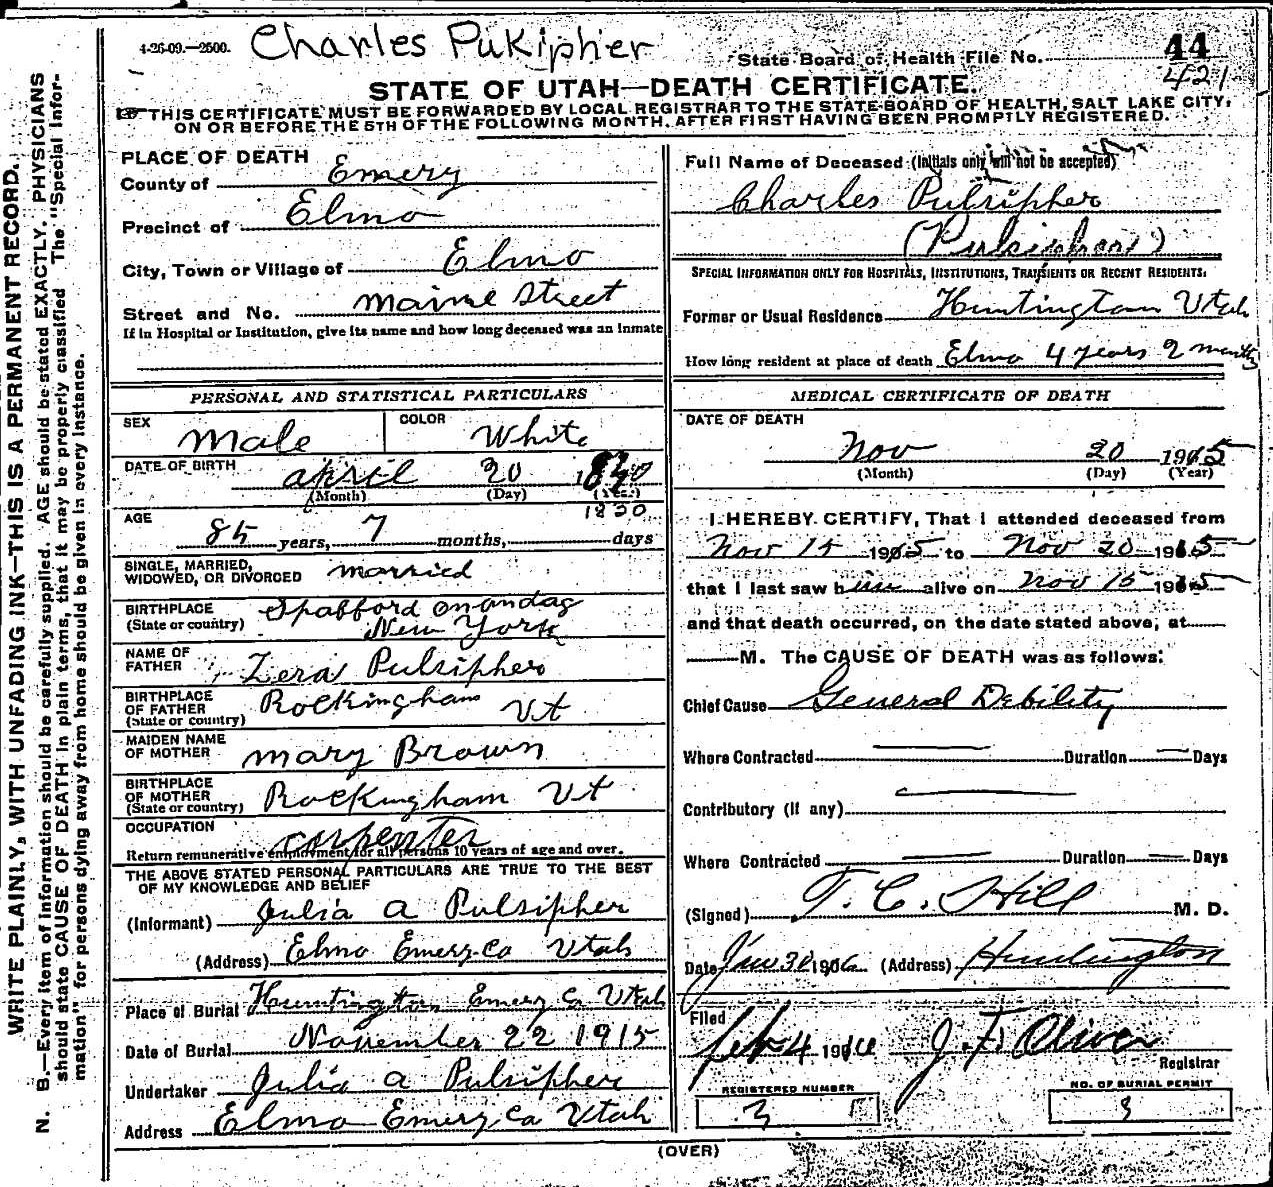 4-26-09.—2500. Charles Pukipher
State Board of Health File No. 44
421
STATE OF UTAH—DEATH CERTIFICATE.
THIS CERTIFICATE MUST BE FORWARDED BY LOCAL REGISTRAR TO THE STATE BOARD OF HEALTH, SALT LAKE CITY,
ON OR BEFORE THE 5TH OF THE FOLLOWING MONTH, AFTER FIRST HAVING BEEN PROMPTLY REGISTERED.
WRITE PLAINLY, WITH UNFADING INK—THIS IS A PERMANENT RECORD.
N. B.—Every item of information should be carefully supplied. AGE should be stated EXACTLY. PHYSICIANS
should state CAUSE OF DEATH in plain terms, that it may be properly classified. The "Special Infor-
mation" for persons dying away from home should be given in every instance.
PLACE OF DEATH
County of Emery
Precinct of Elmo
City, Town or Village of Elmo
Street and No. Maine Street
If in Hospital or Institution, give its name and how long deceased was an inmate
PERSONAL AND STATISTICAL PARTICULARS
SEX Male COLOR White
DATE OF BIRTH april 20
(Month) (Day) (Year)
1830
AGE 85 years, 7 months, days
SINGLE, MARRIED,
WIDOWED, OR DIVORCED married
BIRTHPLACE Spafford onandag
(State or country) New York
NAME OF
FATHER Zera Pulsipher
BIRTHPLACE
OF FATHER Rockingham Vt
(State or country)
MAIDEN NAME
OF MOTHER mary Brown
BIRTHPLACE
OF MOTHER Rockingham Vt
(State or country)
OCCUPATION carpenter
Return remunerative employment for all persons 10 years of age and over.
THE ABOVE STATED PERSONAL PARTICULARS ARE TRUE TO THE BEST
OF MY KNOWLEDGE AND BELIEF
(Informant) Julia a Pulsipher
(Address) Elmo Emery Co Utah
Place of Burial Huntington Emery Co Utah
Date of Burial November 22 1915
Undertaker Julia a Pulsipher
Address Elmo Emery Co Utah
Full Name of Deceased (Initials only will not be accepted)
Charles Pulsipher
SPECIAL INFORMATION ONLY FOR HOSPITALS, INSTITUTIONS, TRANSIENTS OR RECENT RESIDENTS.
Former or Usual Residence Huntington Utah
How long resident at place of death Elmo 4 years 9 months
MEDICAL CERTIFICATE OF DEATH
DATE OF DEATH
Nov 20 1915
(Month) (Day) (Year)
I HEREBY CERTIFY, That I attended deceased from
Nov 15 1915 to Nov 20 1915
that I last saw him alive on Nov 15 1915
and that death occurred, on the date stated above, at
M. The CAUSE OF DEATH was as follows:
Chief Cause General Debility
Where Contracted Duration Days
Contributory (if any)
Where Contracted Duration Days
(Signed) T. C. Hill M. D.
Date Jan 30 1916 (Address) Huntington
Filed Feb 4 1916 J. F. Oliver
Registrar
REGISTERED NUMBER
3
NO. OF BURIAL PERMIT
3
(OVER)